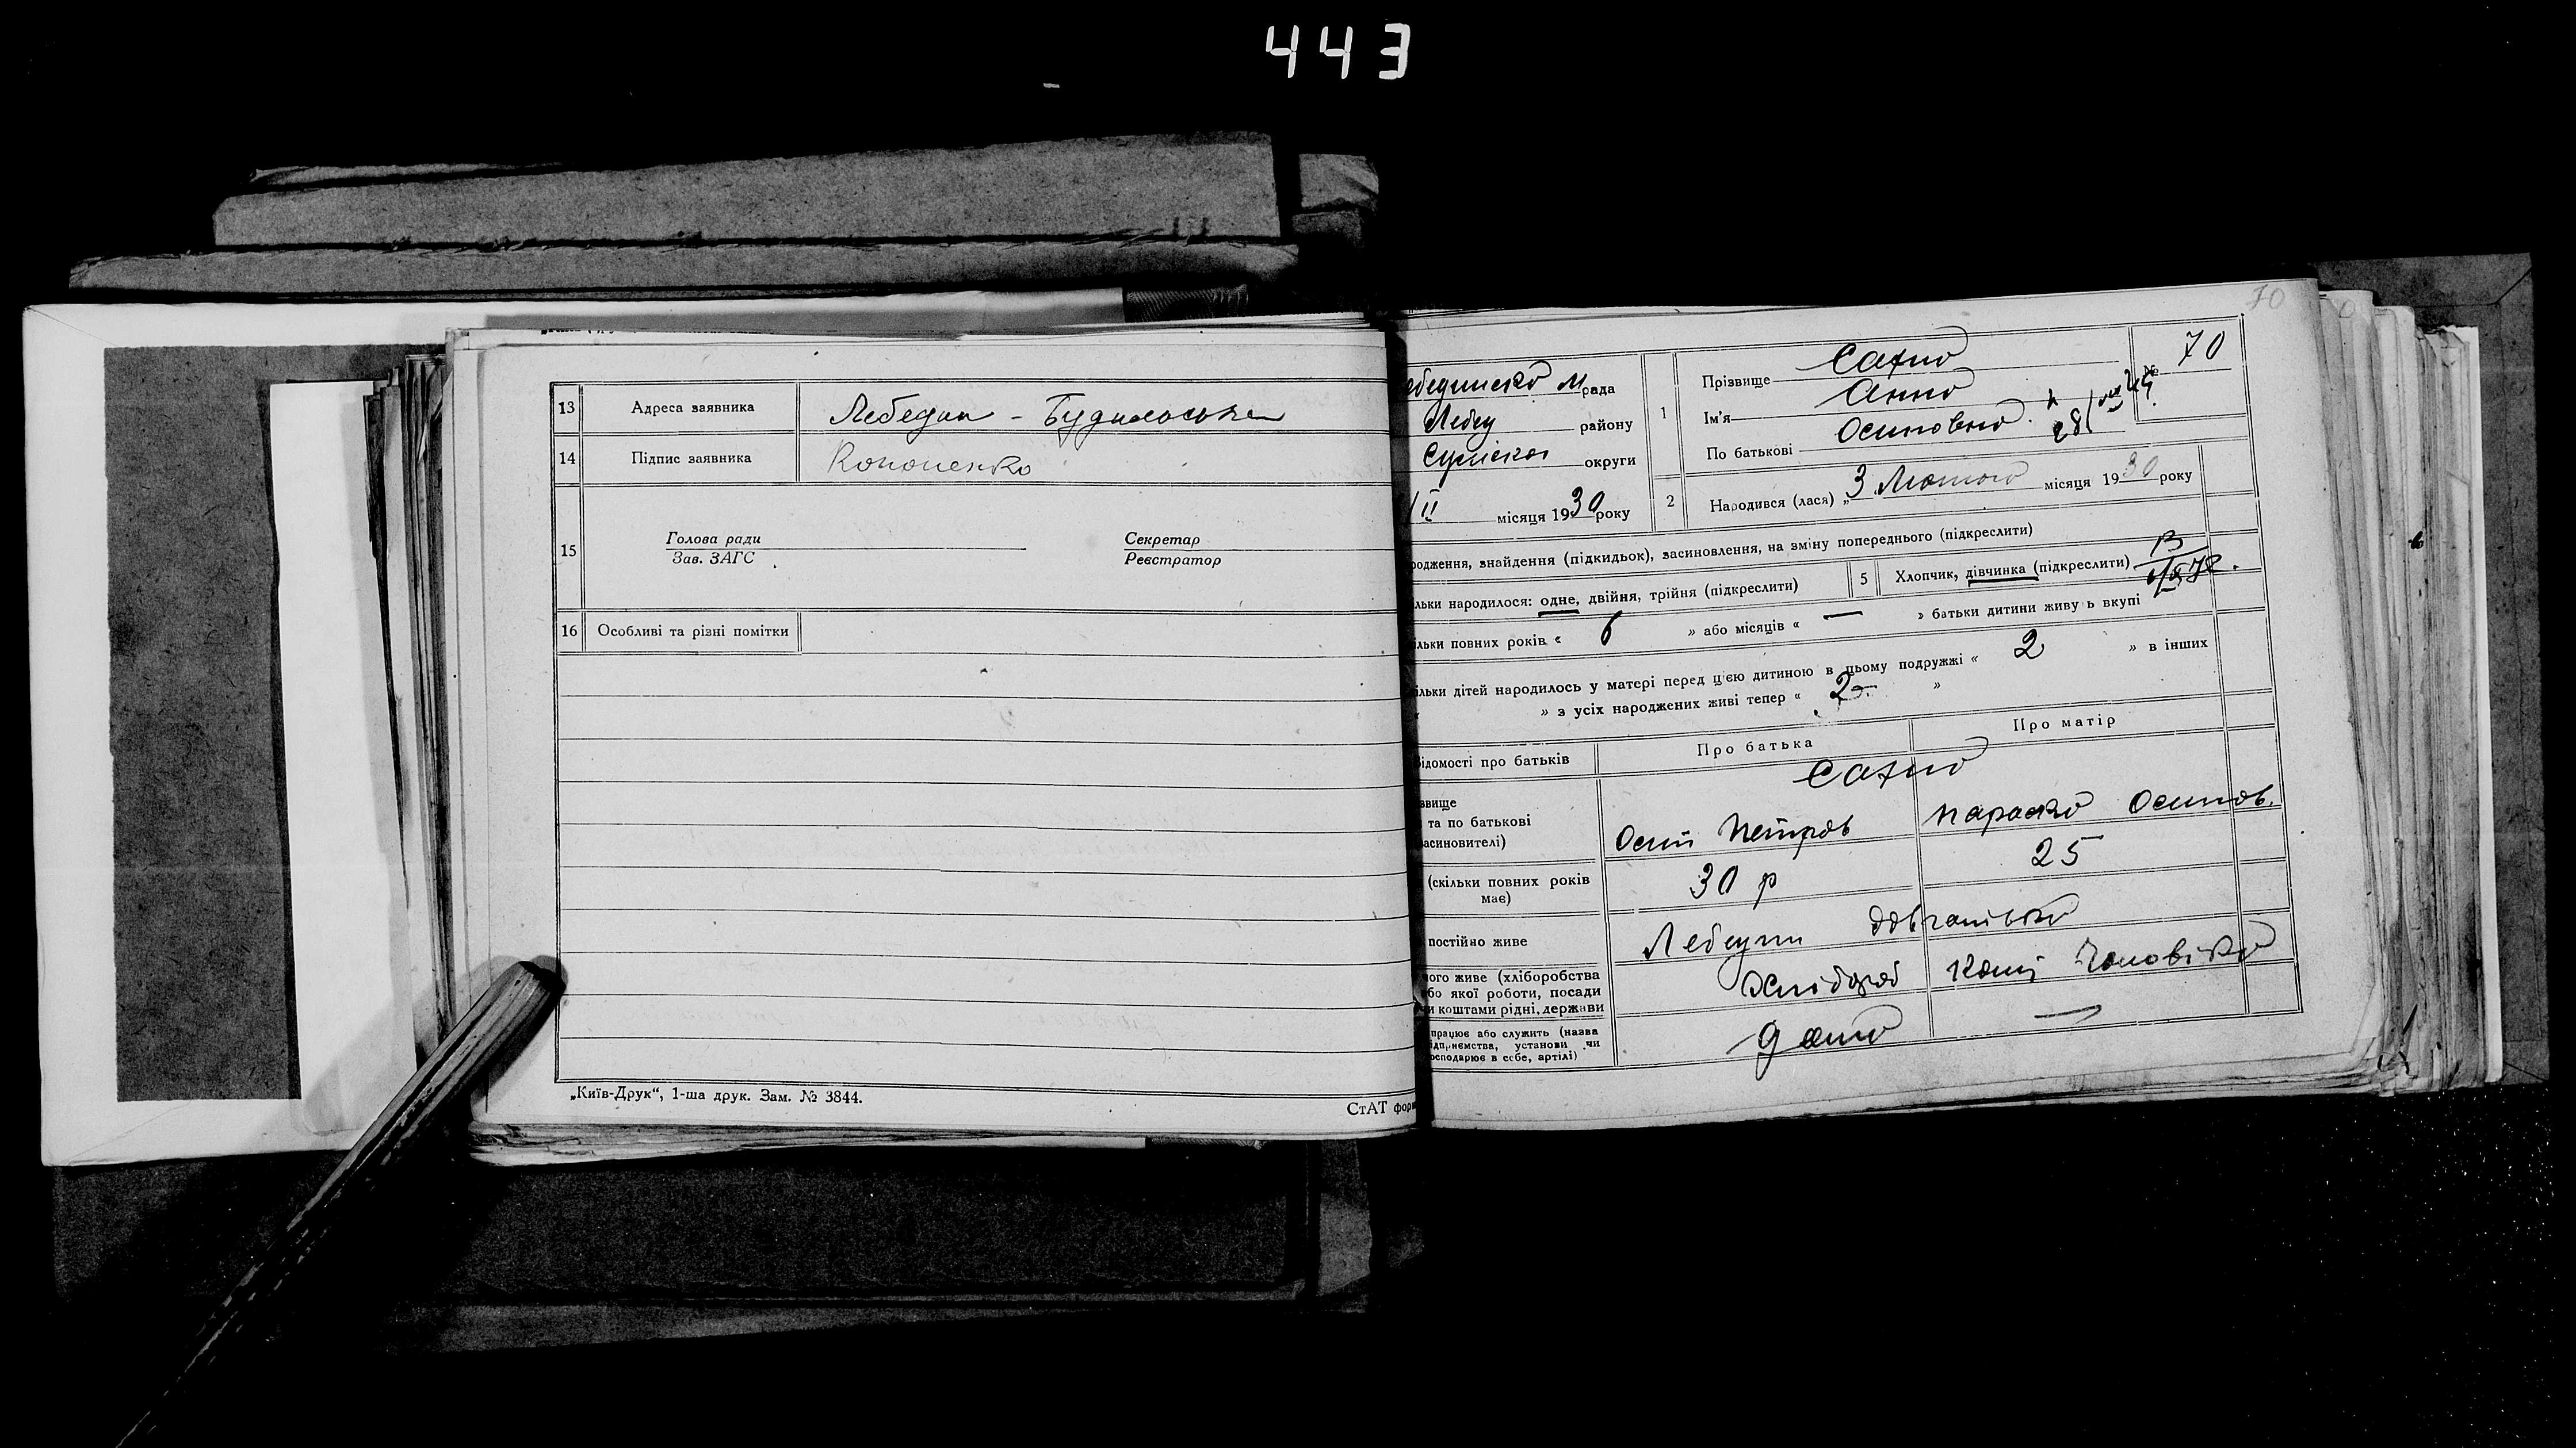 443
13 Адреса заявника Лебедин - Будильська
14 Підпис заявника Кононенко
15 Голова ради
Зав. ЗАГС
Секретар
Реєстратор
16 Особливі та різні помітки
„Київ-Друк“, 1-ша друк. Зам. № 3844.
СтАТ фор
70
ебединсько М рада
Лебед району
Сумсько округи
/II місяця 1930 року
1 Прізвище Сахно
Ім'я Анна
По батькові Осиповна
№ 70
2 Народився (лася) „3 Лютого місяця 1930 року
одження, знайдення (підкидьок), засиновлення, на зміну попереднього (підкреслити)
льки народилося: одне, двійня, трійня (підкреслити)
5 Хлопчик, дівчинка (підкреслити)
ільки повних років « 6 » або місяців « — » батьки дитини живуть вкупі
ільки дітей народилось у матері перед цією дитиною в цьому подружжі « 2 » в інших
» з усіх народжених живі тепер « 2 »
ідомості про батьків Про батька Про матір
Сахно
звище
та по батькові
асиновителі)
Осип Петров Параска Осипов.
(скільки повних років
має)
30 р 25
постійно живе Лебедин
ого живе (хліборобства
бо якої роботи, посади
и коштами рідні, держави
Хлібороб Кошт Чоловіка
працює або служить (назва
ідприємства, установи чи
осподарює в себе, артілі)
дома —